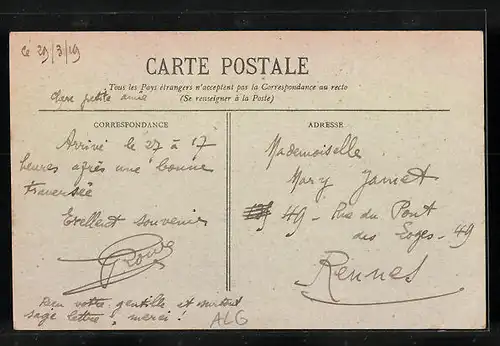 Le 29/3/19
CARTE POSTALE
Tous les Pays étrangers n'acceptent pas la Correspondance au recto
(Se renseigner à la Poste)
Chère petite amie
CORRESPONDANCE
Arrivé le 27 à 17
heures après une bonne
traversée
Exellent souvenir
Reçu votre gentille et surtout
sage lettre, merci!
ALG
ADRESSE
Mademoiselle
Mary Jamet
49 - Rue du Pont
des Loges - 49
Rennes